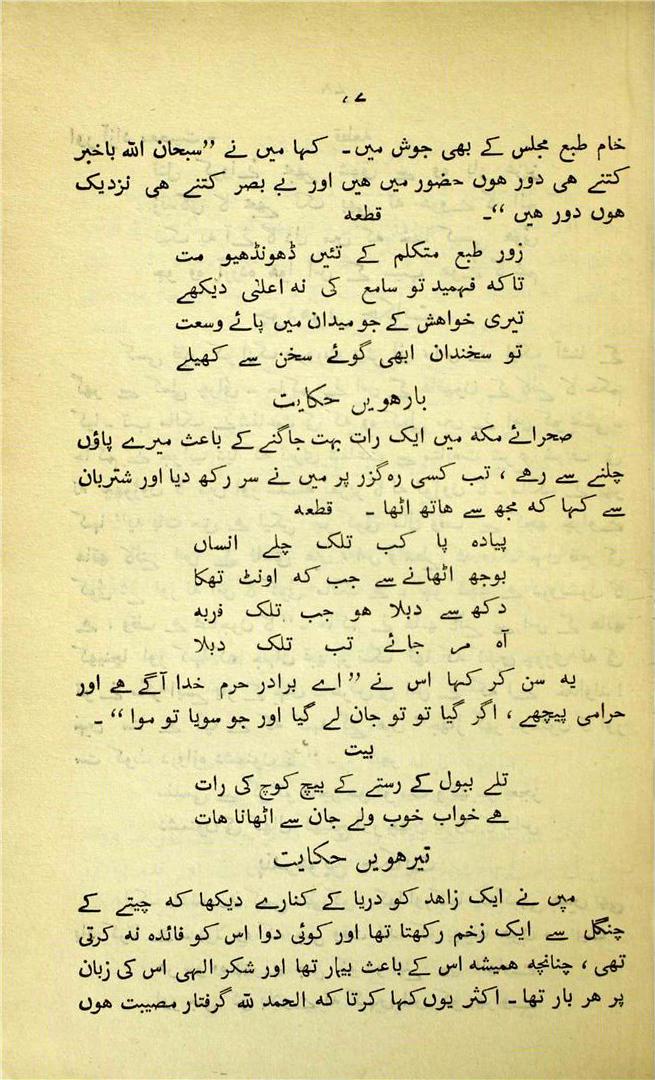 خام طبع مجلس کے بھی جوش میں۔ کہا میں نے ”سبحان اللہ باخبر
کتنے ھی دور ھوں حضور میں ھیں اور بے بصر کتنے ھی نزدیک
ھوں دور ھیں“۔ قطعه
زور طبع متکلم کے تئیں ڈھونڈھیو مت
تاکه فہمید تو سامع کی نه اعلیٰ دیکھے
تیری خواھش کے جو میدان میں پائے وسعت
تو سخندان ابھی گوئے سخن سے کھیلے
بارھویں حکایت
صحرائے مکه میں ایک رات بہت جاگنے کے باعث میرے پاؤں
چلنے سے رھے ، تب کسی رہ گزر پر میں نے سر رکھ دیا اور شتربان
سے کہا که مجھ سے ھاتھ اٹھا۔ قطعه
پیاده پا کب تلک چلے انساں
بوجھ اٹھانے سے جب که اونٹ تھکا
دکھ سے دبلا ھو جب تلک فربه
آه مر جائے تب تلک دبلا
یه سن کر کہا اس نے ”اے برادر حرم خدا آگے ھے اور
حرامی پیچھے ، اگر گیا تو تو جان لے گیا اور جو سویا تو موا“۔
بیت
تلے ببول کے رستے کے بیچ کوچ کی رات
ھے خواب خوب ولے جان سے اٹھانا ھات
تیرھویں حکایت
میں نے ایک زاھد کو دریا کے کنارے دیکھا که چیتے کے
چنگل سے ایک زخم رکھتا تھا اور کوئی دوا اس کو فائدہ نه کرتی
تھی ، چنانچه ھمیشه اس کے باعث بیمار تھا اور شکر الٰہی اس کی زبان
پر ھر بار تھا۔ اکثر یوں کہا کرتا که الحمد للہ گرفتار مصیبت ھوں